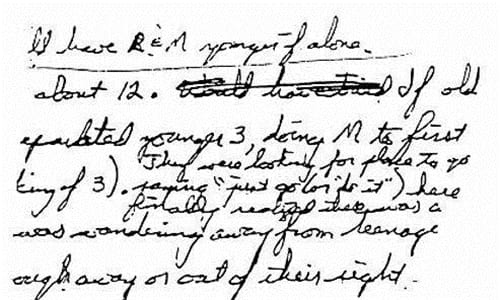 ld have R & M younger if alone.
about 12. Would have tried If old
eparated younger 3, doing M to first
They were looking for place to go
king of 3). saying "just go (or "do it") here
finally realized there was a
was wandering away from teenage
ough away or out of their sight.